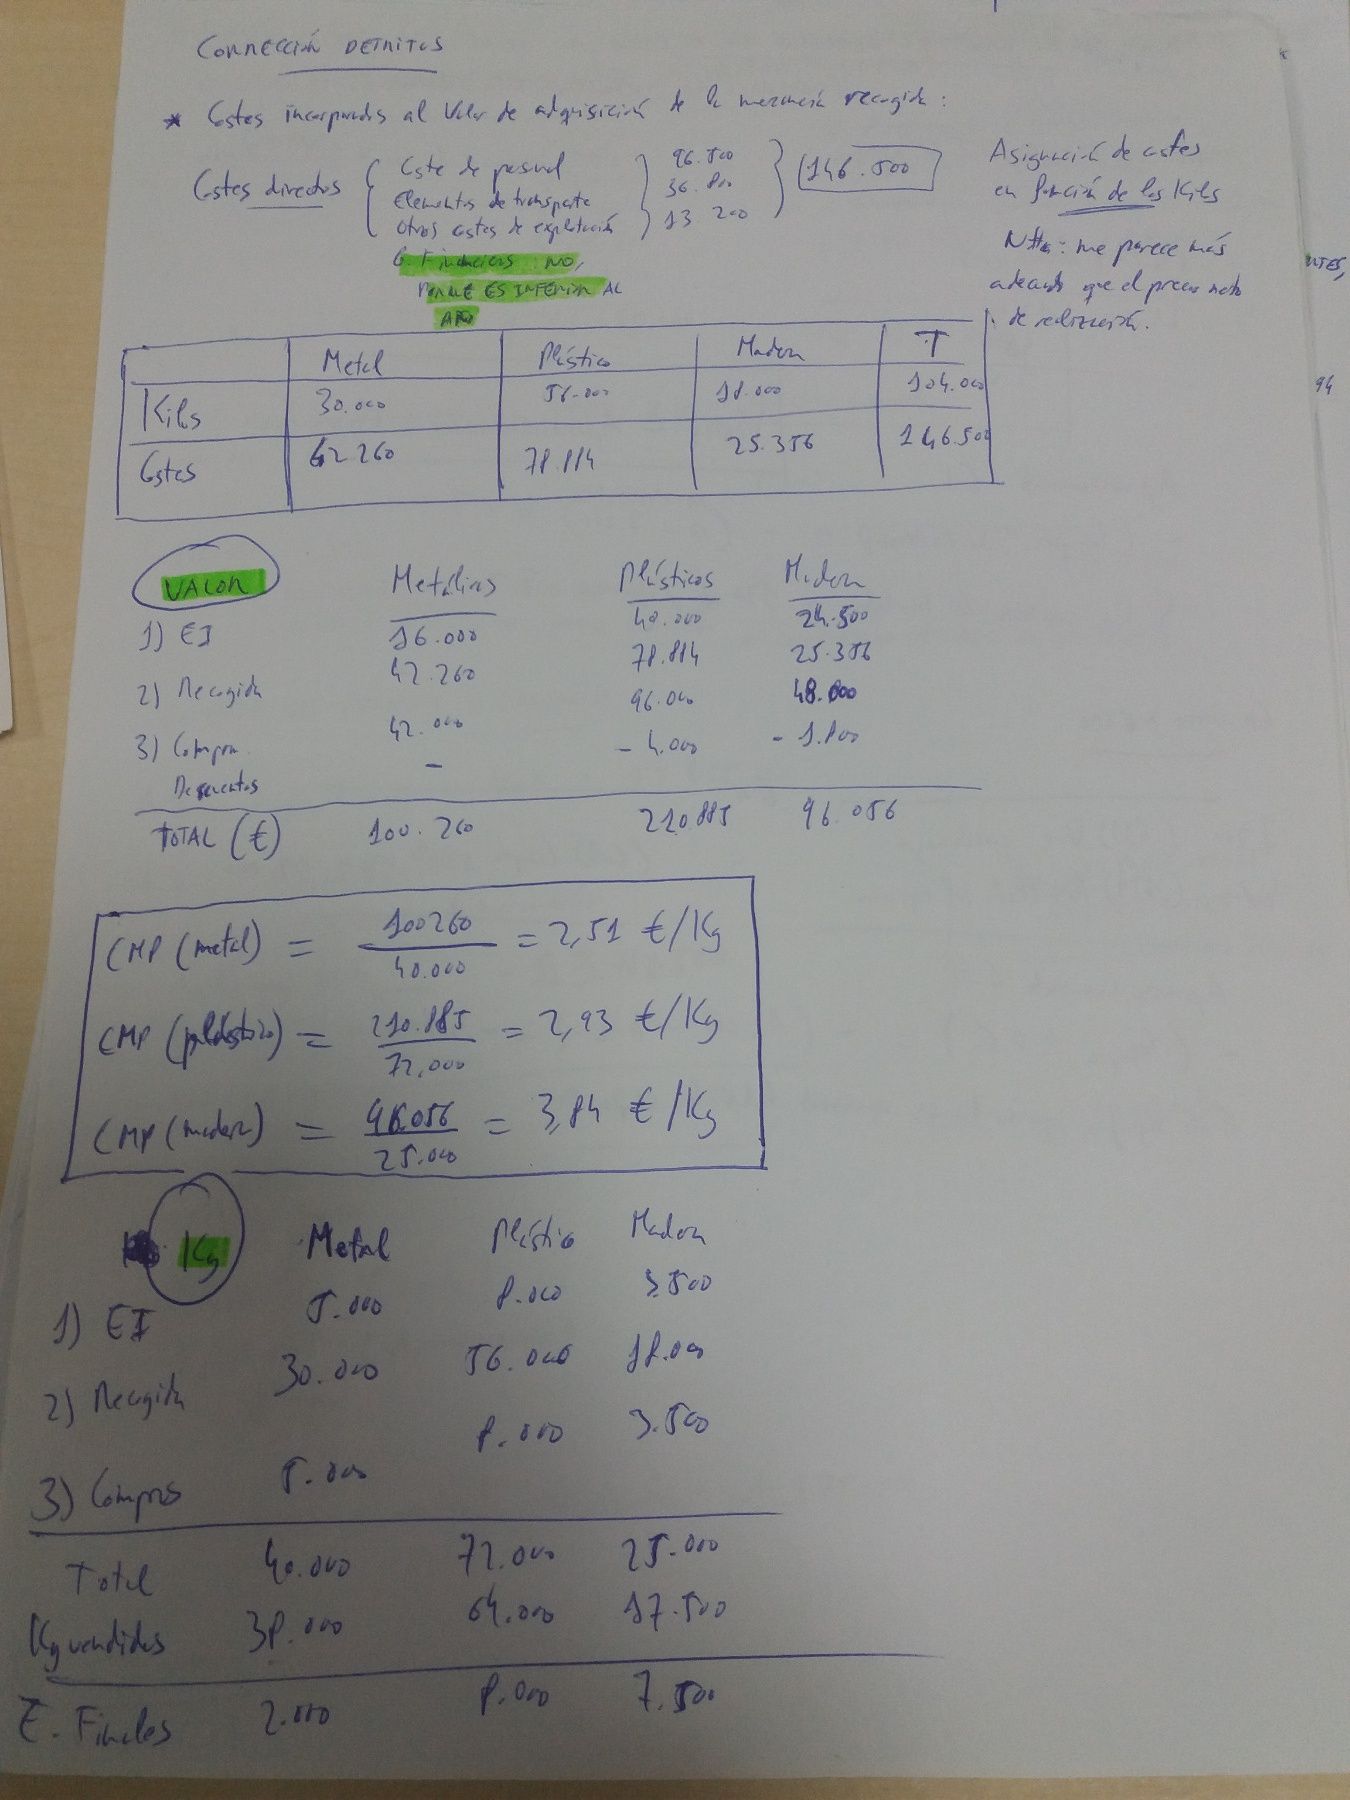 CORRECCIÓN DETRITUS
* Costes incorporados al Valor de adquisición de la mercancía recogida:
Costes directos
Coste de personal 96.500
Elementos de transporte 36.800
Otros costes de explotación 13 200
146.500
G. Financieros NO,
PORQUE ES INFERIOR AL
AÑO
Asignación de costes
en función de los Kilos
Nota: me parece más
adecuado que el precio neto
de realización.
Metal Plástico Madera T
Kilos 30.000 56.000 18.000 104.000
Costes 42.260 78.884 25.356 146.500
VALOR Metálicos Plásticos Madera
1) EI 16.000 40.000 24.500
2) Recogida 42.260 78.884 25.356
3) Compra 42.000 96.000 48.000
Descuentos - - 4.000 - 1.800
TOTAL (€) 100.260 210.885 96.056
CMP (metal) = 100260 / 40.000 = 2,51 €/Kg
CMP (plástico) = 210.885 / 72.000 = 2,93 €/Kg
CMP (madera) = 96.056 / 25.000 = 3,84 €/Kg
Kg Metal Plástico Madera
1) EI 5.000 8.000 3.500
2) Recogida 30.000 56.000 18.000
3) Compras 5.000 8.000 3.500
Total 40.000 72.000 25.000
Kg vendidos 38.000 64.000 17.500
E. Finales 2.000 8.000 7.500
94